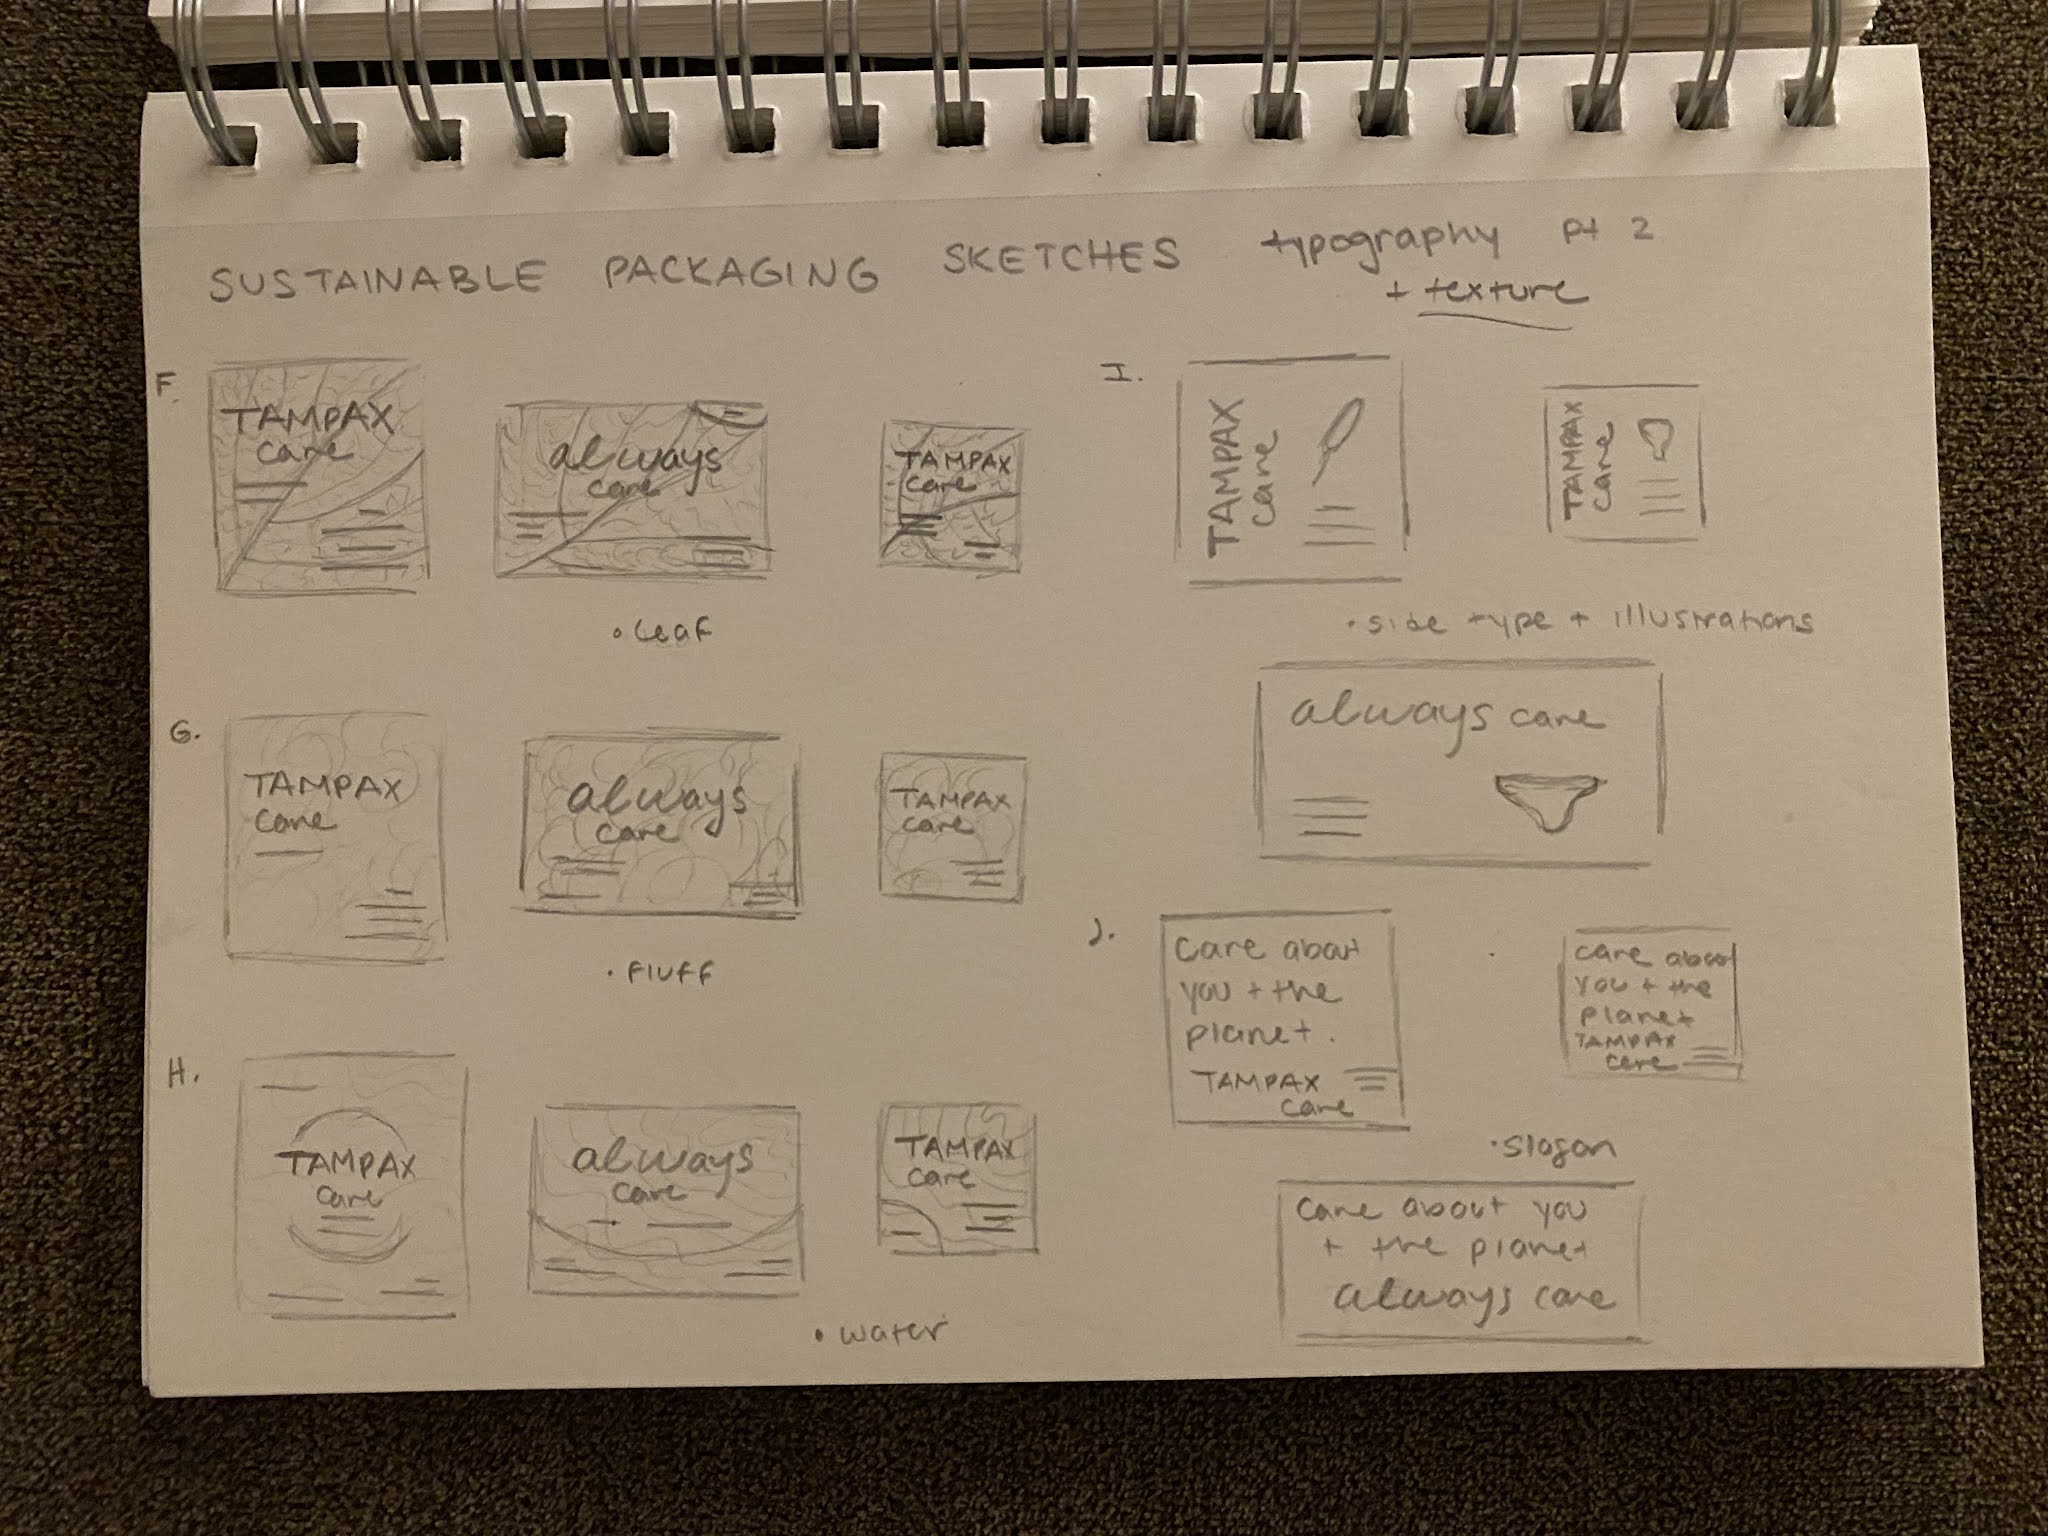 SUSTAINABLE PACKAGING SKETCHES typography pt 2
+ texture
F.
TAMPAX
care
always
care
TAMPAX
care
• Leaf
G.
TAMPAX
care
always
care
TAMPAX
care
• Fluff
H.
TAMPAX
care
always
care
TAMPAX
care
• water
I.
TAMPAX
care
TAMPAX
care
• side type + illustrations
always care
J.
care about
you + the
planet.
TAMPAX
care
care about
you + the
planet
TAMPAX
care
• slogan
care about you
+ the planet
always care